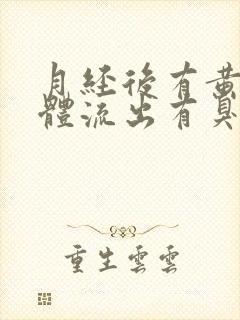 月經後有黃
體流出有臭
重生雲雲